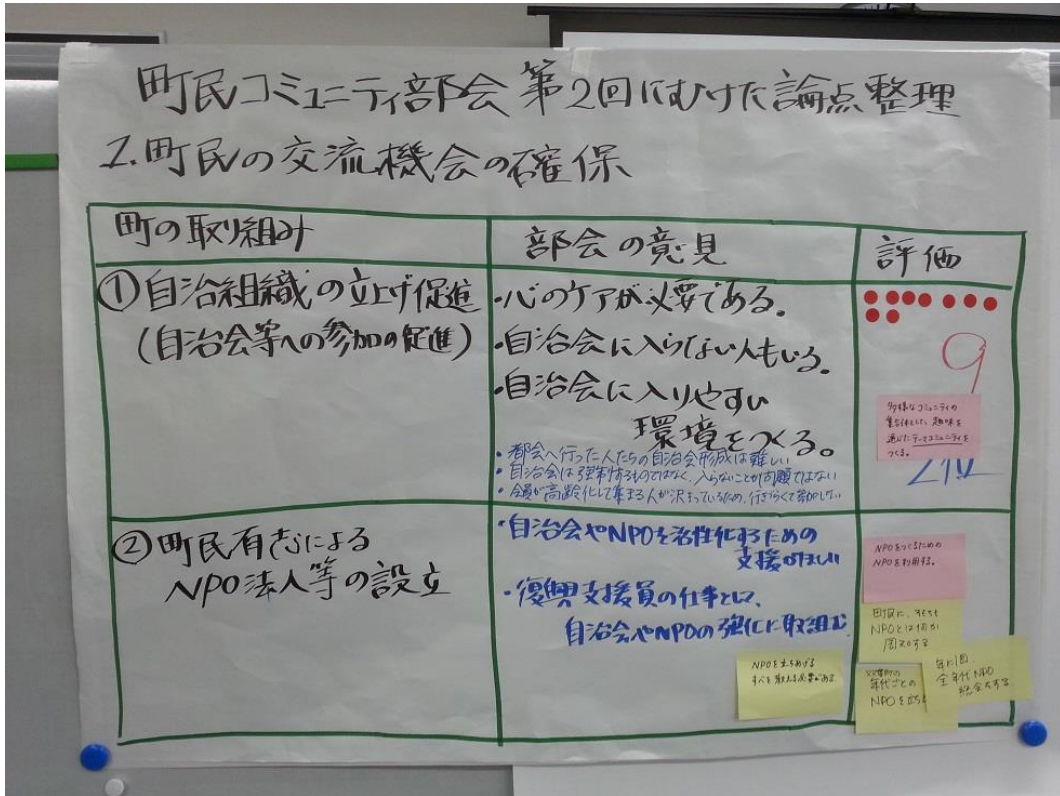 町民コミュニティ部会 第2回にむけた論点整理
1.町民の交流機会の確保
町の取り組み
部会の意見
評価
①自治組織の立上げ促進
(自治会等への参加の促進)
・心のケアが必要である。
・自治会に入らない人もいる。
・自治会に入りやすい
環境をつくる。
・都会へ行った人たちの自治会形成は難しい
・自治会は強制するものではなく、入らないことが問題ではない
・会員が高齢化して集まる人が決まっているため、行きづらくて参加しない
9
多様なコミュニティの
集合体とした、趣味を
通じたテーマコミュニティを
つくる。
②町民有志による
NPO法人等の設立
・自治会やNPOを活性化するための
支援がほしい
・復興支援員の仕事として、
自治会やNPOの強化に取組む
NPOを立ちあげる
すべを教える必要がある
NPOをつくるための
NPOを利用する。
町民に、そもそも
NPOとは何か
周知する
年代ごとの
NPOを立ち
年に1回
全年代NPO
総会をする